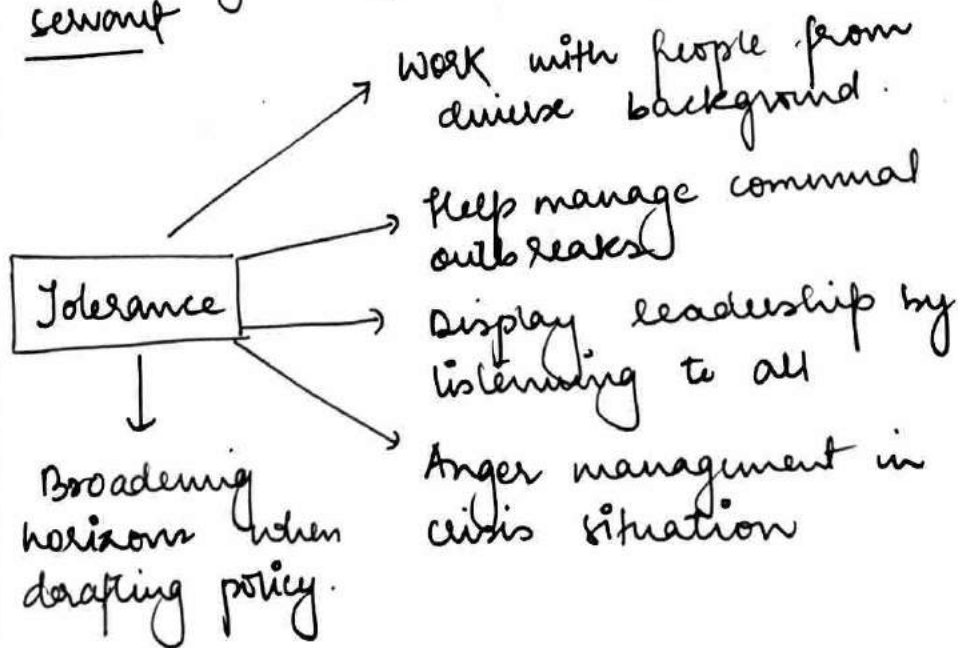 servant
Work with people from
diverse background.
Help manage communal
outbreaks
Tolerance
Display leadership by
listening to all
Anger management in
crisis situation
Broadening
horizons when
drafting policy.